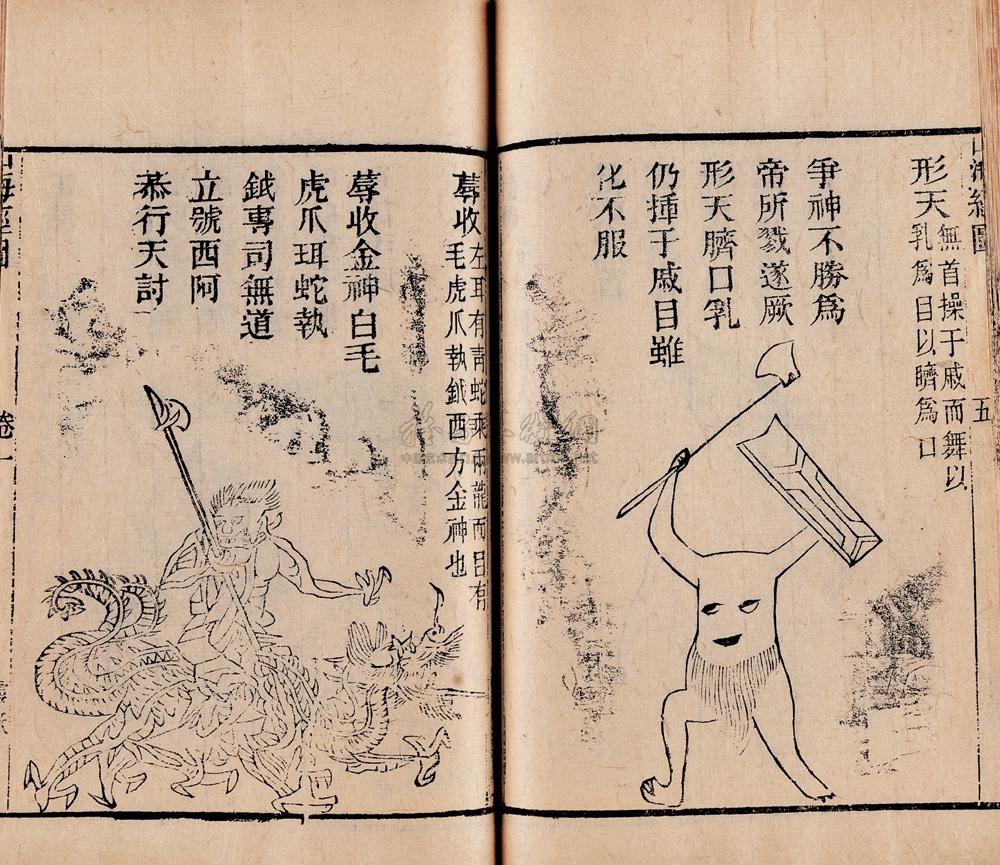 山海經圖
五
形天 無首操干戚而舞以
乳為目以臍為口
爭神不勝為
帝所戮遂厥
形天臍口乳
仍揮干戚目雖
化不服
蓐收 左耳有青蛇乘兩龍而目有
毛虎爪執鉞西方金神也
蓐收金神白毛
虎爪珥蛇執
鉞專司無道
立號西阿
恭行天討
山海經圖
卷一